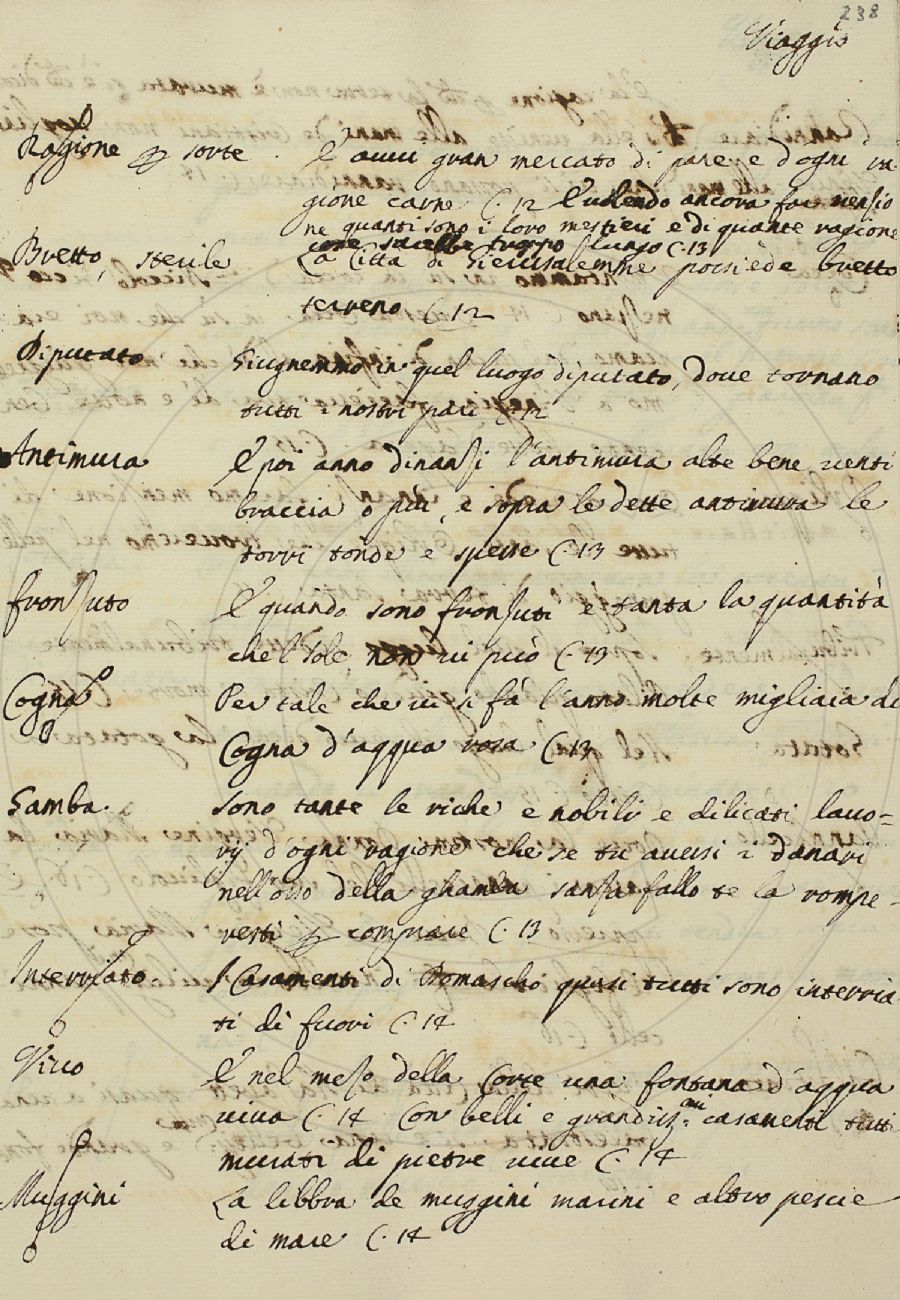 238
Viaggio
Ragione p sorte E avvi gran mercato di pane e d'ogni ra
gione carne C. 12 E volendo ancora far mensio
ne quanti sono i loro mestieri e di quante ragione
cose sarebbe troppo lungo C. 13
Bretto, sterile La Città di Gierusalemme possiede bretto
terreno C. 12
Diputato Giugnemmo in quel luogo diputato, dove tornano
tutti i nostri pari C. 12
Antimura E poi anno dinansi l'antimura alte bene venti
braccia o più, e sopra le dette antimura le
torri tonde e spesse C. 13
Fronsuto E quando sono fronsuti è tanta la quantità
che l'sole non vi può C. 13
Cogna Per tale che ivi si fà l'anno molte migliaia di
Cogna d'acqua rosa C. 13
Gamba. Sono tante le riche e nobili e dilicati lavo=
rij d'ogni ragione che se tu avessi i danari
nell'osso della ghamba sansa fallo te la rompe=
resti p comprare C. 13
Interriato I Casamenti di Domascho quasi tutti sono interria
ti di fuori C. 14
Vivo E nel meso della Corte una fontana d'acqua
viva C. 14 Con belli e grandiss.mi casamenti tutti
murati di pietre vive C. 14
Muggini La libbra de muggini marini e altro pescie
di mare C. 14